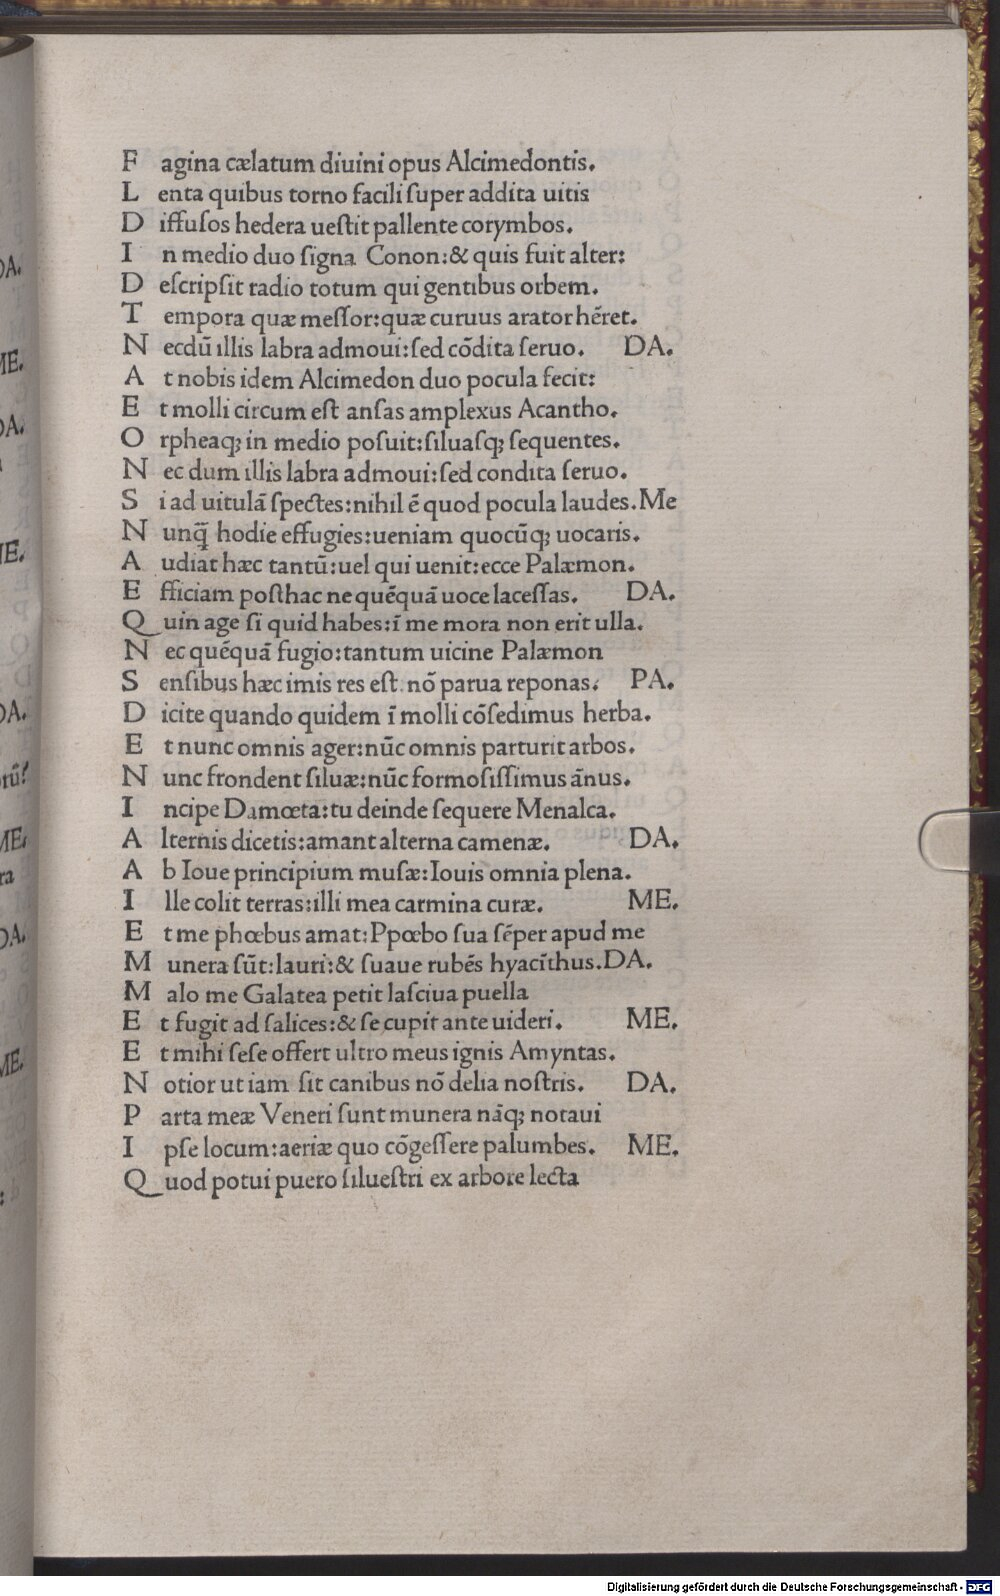 F agina cælatum diuini opus Alcimedontis.
L enta quibus torno facili ſuper addita uitis
D iffuſos hedera ueſtit pallente corymbos.
I n medio duo ſigna Conon:& quis fuit alter:
D eſcripſit radio totum qui gentibus orbem.
T empora quæ meſſor:quæ curuus arator hēret.
N ecdū illis labra admoui:ſed cōdita ſeruo. DA.
A t nobis idem Alcimedon duo pocula fecit:
E t molli circum eſt anſas amplexus Acantho.
O rpheaq; in medio poſuit:ſiluaſq; ſequentes.
N ec dum illis labra admoui:ſed condita ſeruo.
S i ad uitulā ſpectes:nihil ē quod pocula laudes.Me
N unq̄ hodie effugies:ueniam quocūq; uocaris.
A udiat hæc tantū:uel qui uenit:ecce Palæmon.
E fficiam poſthac ne quēquā uoce laceſſas. DA.
Q uin age ſi quid habes:ī me mora non erit ulla.
N ec quēquā fugio:tantum uicine Palæmon
S enſibus hæc imis res eſt nō parua reponas. PA.
D icite quando quidem ī molli cōſedimus herba.
E t nunc omnis ager:nūc omnis parturit arbos.
N unc frondent ſiluæ:nūc formoſiſſimus ānus.
I ncipe Damœta:tu deinde ſequere Menalca.
A lternis dicetis:amant alterna camenæ. DA.
A b Ioue principium muſæ:Iouis omnia plena.
I lle colit terras:illi mea carmina curæ. ME.
E t me phœbus amat:Ppœbo ſua ſēper apud me
M unera ſūt:lauri:& ſuaue rubēs hyacīthus.DA.
M alo me Galatea petit laſciua puella
E t fugit ad ſalices:& ſe cupit ante uideri. ME.
E t mihi ſeſe offert ultro meus ignis Amyntas.
N otior ut iam ſit canibus nō delia noſtris. DA.
P arta meæ Veneri ſunt munera nāq; notaui
I pſe locum:aeriæ quo cōgeſſere palumbes. ME.
Q uod potui puero ſilueſtri ex arbore lecta
DA.
ME.
DA.
ME.
DA.
rū?
ME.
ra
DA.
ME.
Digitalisierung gefördert durch die Deutsche Forschungsgemeinschaft - DFG